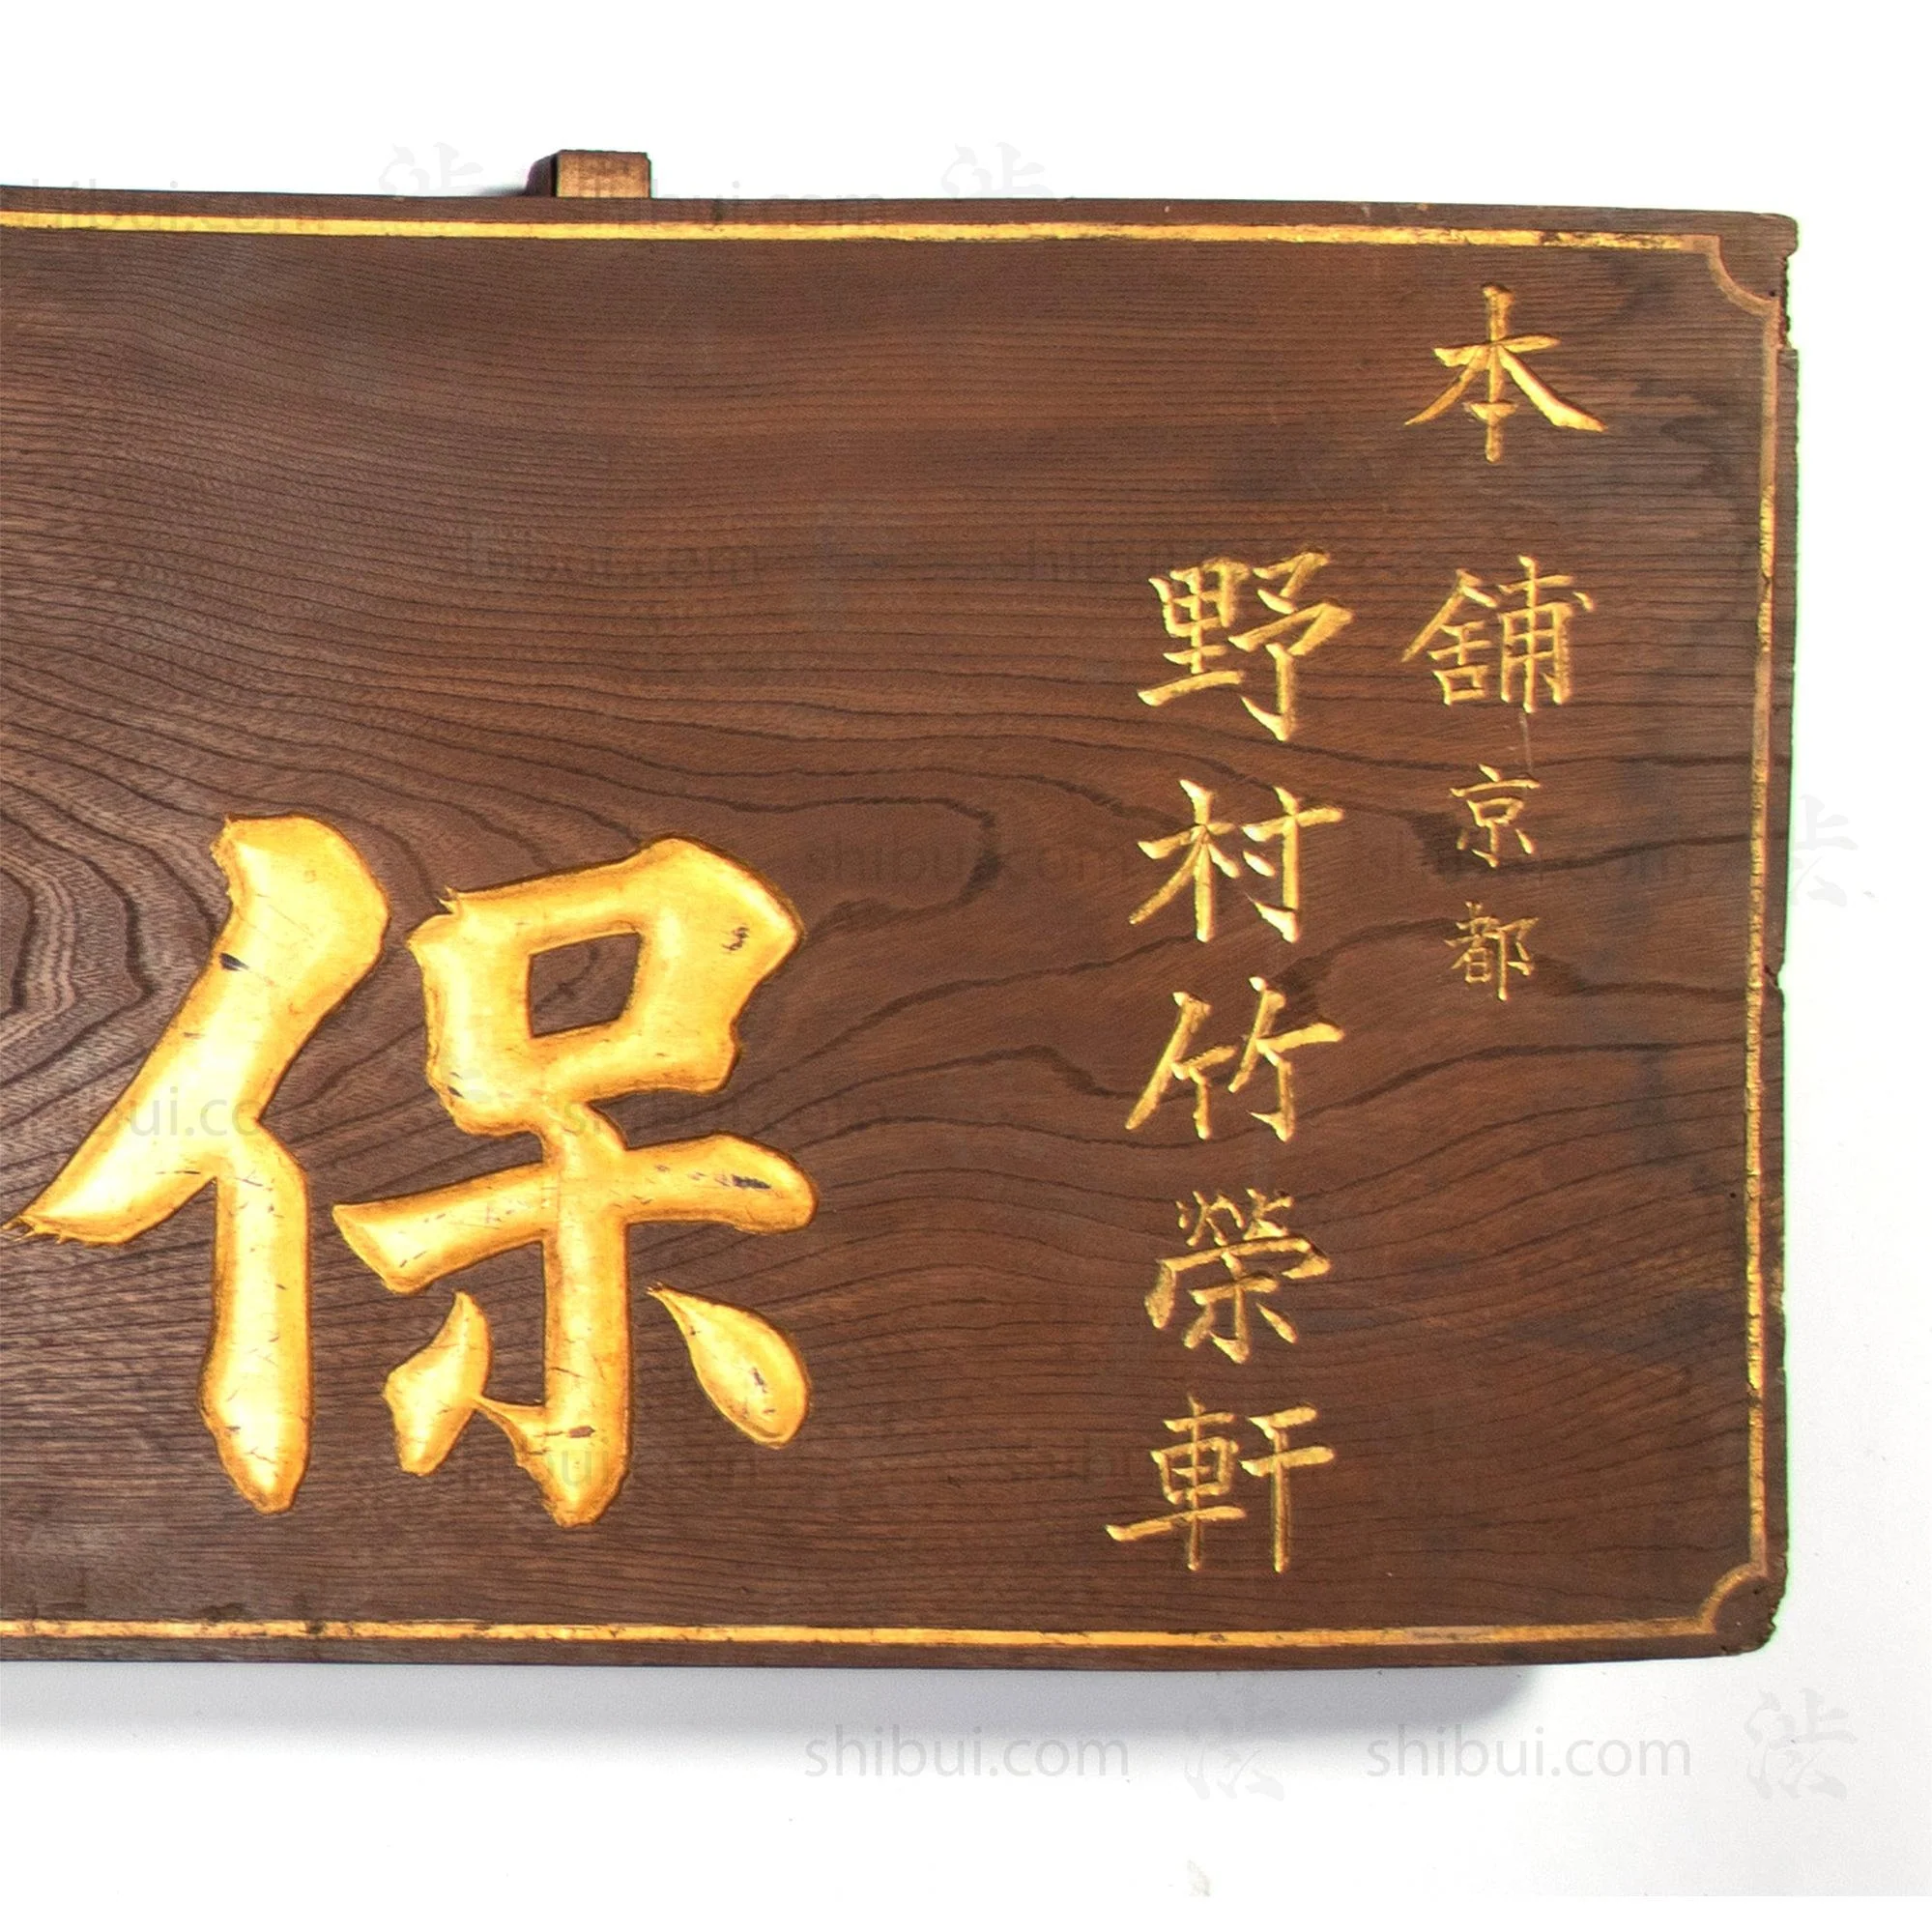 本舖京都
野村竹榮軒
保
shibui.com
shibui.com